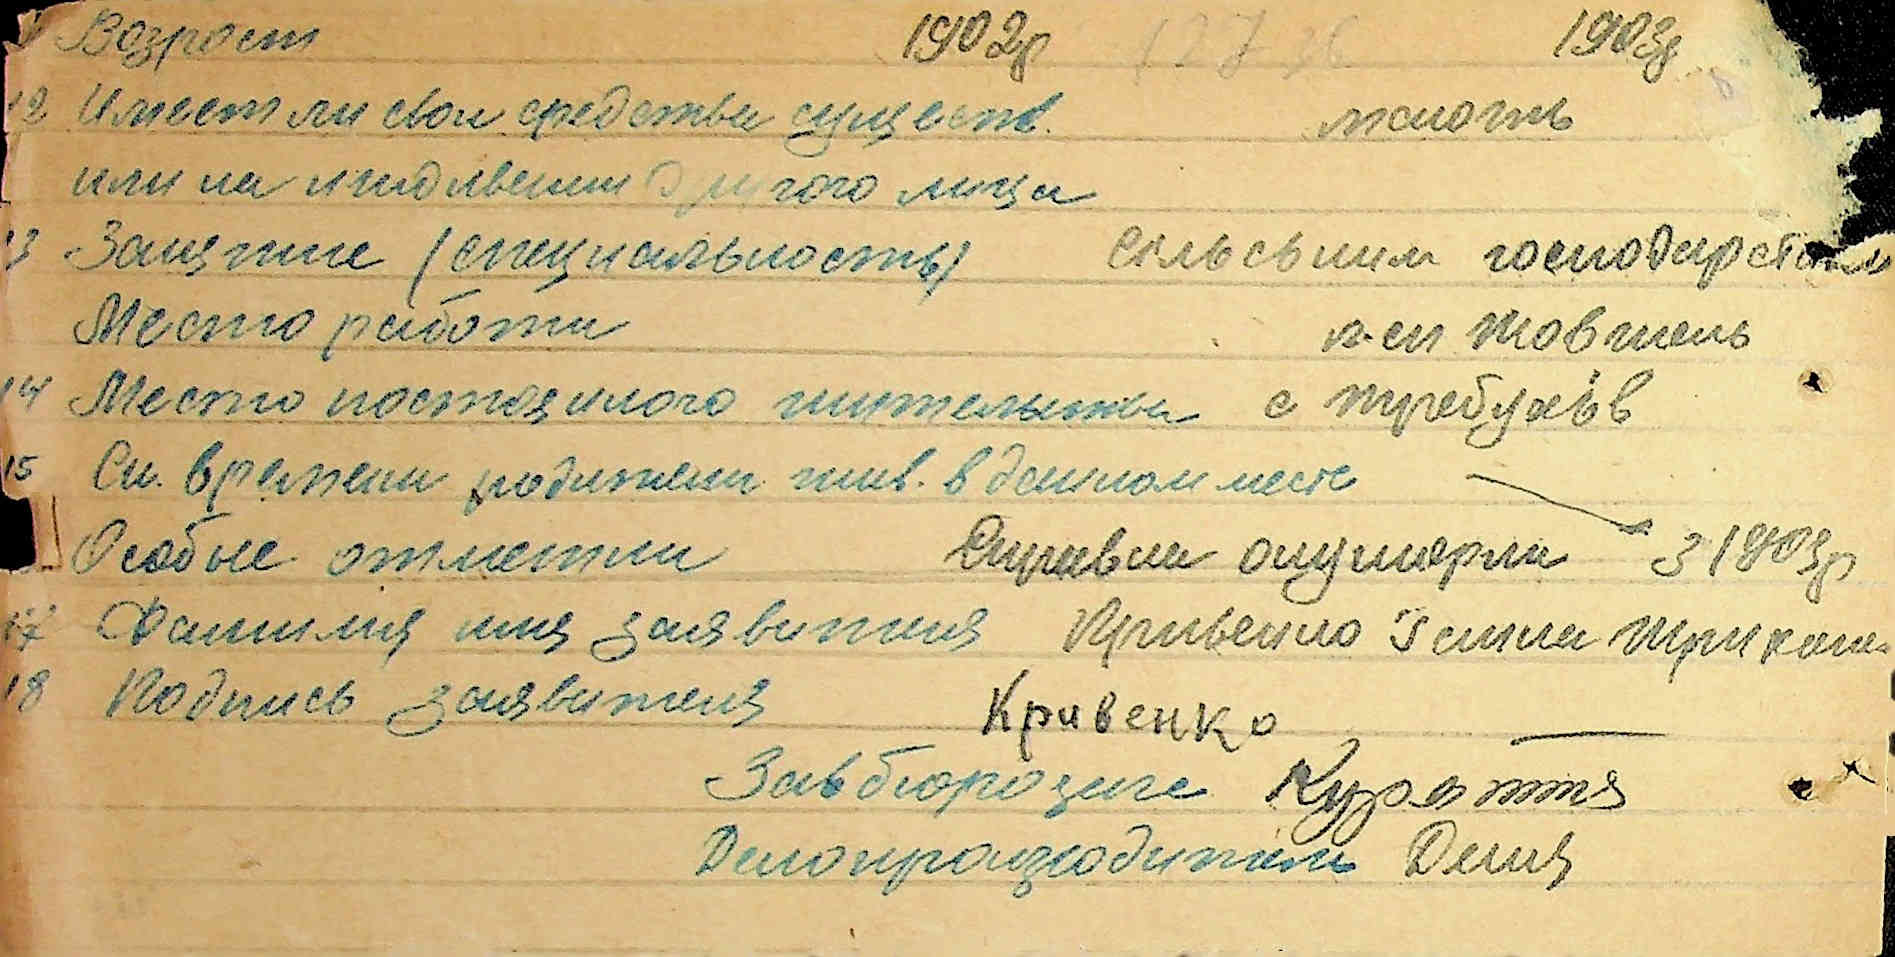 Возраст 1902р 1903р
12 Имеет ли свои средства существ. мають
или на иждивении другого лица
13 Занятие (специальность) Сільським господарством
Место работы к-сп Жовтень
14 Место постоянного жительства с Требухів
15 Си. времени рождения жив. в данном месте
Особые отметки Справка оцумерли з 1903р
17 Фамилия имя заявителя Кривенко Трихон
18 Подпись заявителя Кривенко
Завбюрозаге
Делопроизводитель Деня